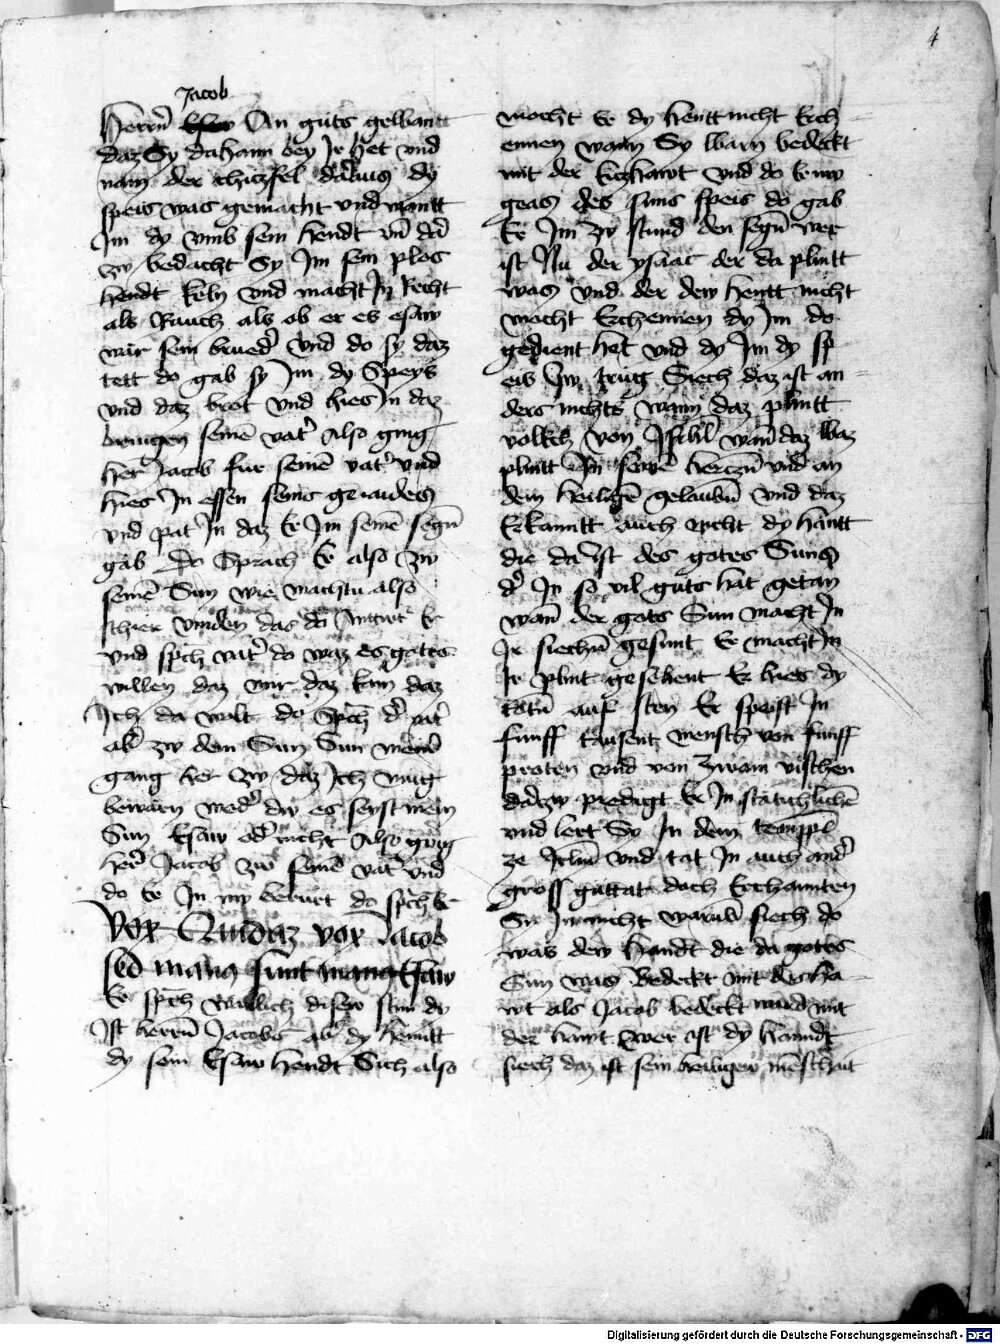 4
Jacob
Herrn̄ Esaw An gůts gelbant
daz Sy dahaim bey Jr het vnd
nam der chiczfel dy
speis was gemacht vnd want
Jm dy vmb sein hendt vn̄
zw bedacht Sy Jm sein plos
hendt keln vnd macht Jn Recht
als Rauch als ob er es esaw
wär sein brued' Vnd do sy daz
tett do gab sy Jm dy Speys
vnd daz brot vnd hies Jn daz
bringen seinē vat' Also ging
her Jacob fur seinē vat' vnd
hies Jn essen seins geiaides
vnd pat Jn daz Er Jm seinē segn̄
gab Do Sprach Er also zw
seinē Sun wie machstu also
schier vinden das do Antwrt Er
vnd sp̄ch vat' do waz es gottes
willen daz mir daz kam daz
Jch da wolt do Sp̄ch d' vat'
ab' zw dem Sun Sun meinē
gang her zw daz Jch mug
bewärn wed' dw es seyst mein
Sun Esaw od' nicht Also ging
her Jacob zw seinē vat' vnd
do er Jn berurt do sp̄ch Er
Vox Quidaz vox Jacob
sed manus sunt manus Esaw
Er sp̄ch warlich disew stim dy
Jst herrn̄ Jacobs ab' dy hentt
dy sein Esaw hendt Sich also
mocht Er dy hentt nicht Erch
ennen wann Sy warn bedekt
mit der kiczhawt vnd do Er nw
geas des suns speis do gab
Er Jm zw stund den segn̄ wer
ist Nu der ysaac der da plintt
was vnd der dew hentt nicht
mocht Erchennen dy Jm do
gedient het vnd dy Jm dy sp
eis trug Siech daz ist an
ders nichts wann daz plintt
volkch von Jsrl̄ wan̄ daz waz
plintt Jn herczn̄ vnd an
dem heiligē gelaubn̄ vnd daz
Erkanntt auch nicht dy hantt
die da ist des gotes Suns
d' Jn so vil guts hat getan
wan̄ der gots Sun macht Jn
Jr siechn̄ gesunt Er macht Jn
Jr plint gesehent Er hies dy
totn̄ auf sten Er speist Jn
funff tausent mensch von funff
proten vnd von zwain vischen
darzw predigt Er Jn statichlichē
vnd lert Sy Jn dem temppl
ze Jrlm̄ vnd tat Jn auch and'
gross guttat doch Erchannten
Sy Jn nicht warub siech do
was dew handt die da gotes
Sun was bedekt mit der ha
wt als Jacob bedekt ward mit
der hawt Wer ist dy hanndt
siech daz ist sein heiligew menschait
Digitalisierung gefördert durch die Deutsche Forschungsgemeinschaft - DFG